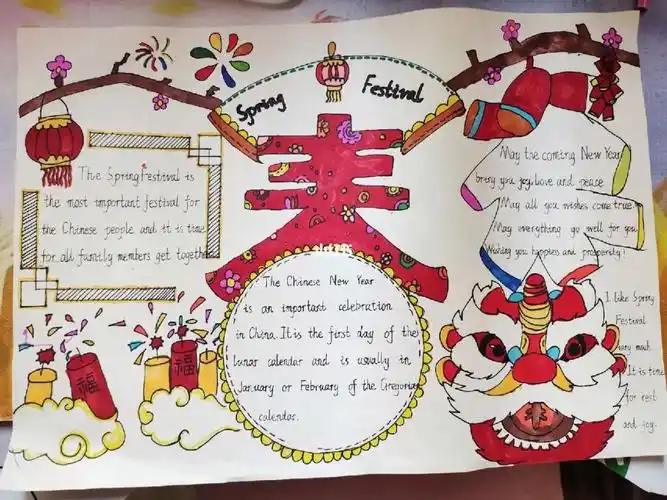 Spring Festival
春
The Spring Festival is
the most important festival for
the Chinese people and it is time
for all family members get together
福
福
The Chinese New Year
is an important celebration
in China. It is the first day of the
lunar calendar and is usually in
January or February of the Gregorian
calendar.
May the coming New Year
bring you joy, love and peace
May all you wishes come true
May everything go well for you
Wishing you happies and prosperity!
I like Spring
Festival
very much
It is time
for rest
and joy.